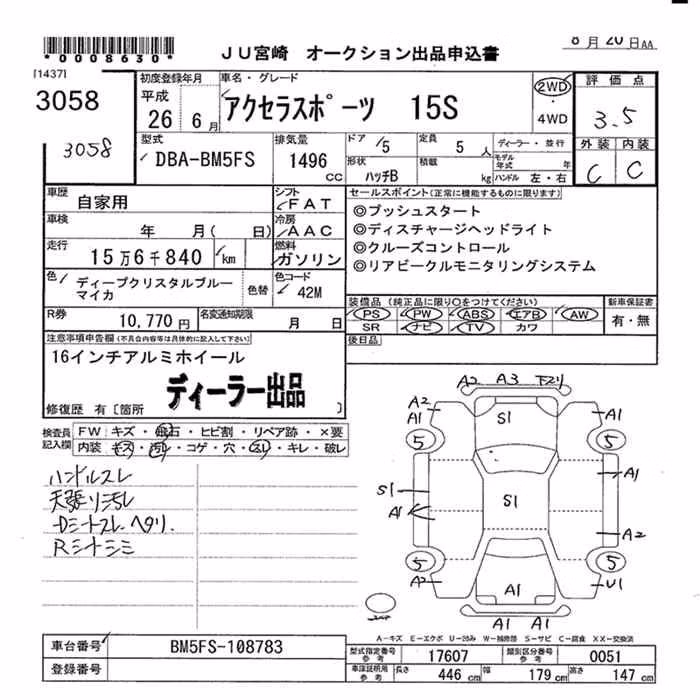 *0008630*
JU宮崎 オークション出品申込書
8月20日AA
[1437]
3058
3058
初度登録年月
平成
26 6月
車名・グレード
アクセラスポーツ 15S
2WD
・
4WD
評価点
3.5
外装 内装
C C
型式
DBA-BM5FS
排気量
1496
CC
ドア
/5
形状
ハッチB
定員
5人
積載
kg
ディーラー・並行
モデル年式 年
ハンドル 左・右
車歴
自家用
シフト
FAT
車検
年 月( 日)
冷房
AAC
走行
15万6千840 km
燃料
ガソリン
色
ディープクリスタルブルー
マイカ
色替
色コード
42M
R券
10,770円
名変通知期限
月 日
セールスポイント(正常に機能するものに限ります)
◎プッシュスタート
◎ディスチャージヘッドライト
◎クルーズコントロール
◎リアビークルモニタリングシステム
装備品(純正品に限り○をつけてください)
PS PW ABS エアB AW
SR ナビ TV カワ
新車保証書
有・無
後日品
注意事項申告欄(不具合内容等は具体的に記入して下さい)
16インチアルミホイール
ディーラー出品
修復歴 有〔箇所 〕
検査員
記入欄
FW キズ・飛石・ヒビ割・リペア跡・×要
内装 キズ・汚レ・コゲ・穴・スレ・キレ・破レ
ハンドルスレ
天張リ汚レ
Dシートスレ ヘタリ.
Rシートシミ
A2 A3 下スリ
A2
A1
S1
A1
5
5
A1
S1
A1
S1
A2
5
5
A2
A1
U1
A1 A1
A-キズ E-エクボ U-凹み W-補修跡 S-サビ C-腐食 XX-交換済
車台番号
BM5FS-108783
登録番号
型式指定番号
参考
17607
類別区分番号
参考
0051
車庫証明用
参考
長さ
446 cm
幅
179 cm
高さ
147 cm